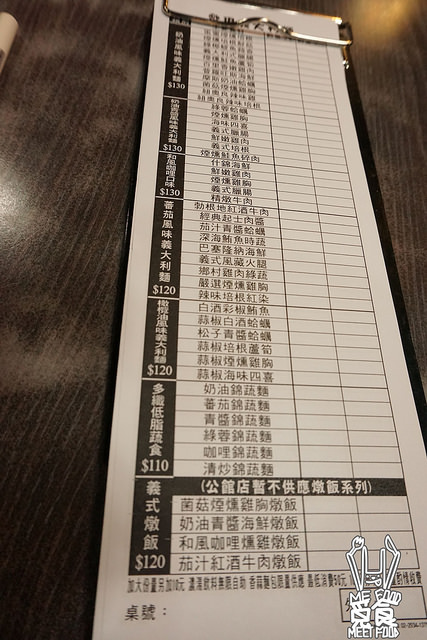 奶油風味義大利麵
$130
紐奧良辣味培根
奶油青醬風味義大利麵
$130
綠蓉蛤蠣
煙燻雞胸
海味四喜
義式臘腸
鮮嫩雞肉
義式培根
煙燻鮭魚碎肉
和風咖哩口味
$130
什錦海鮮
鮮嫩雞肉
煙燻雞胸
義式臘腸
精燉牛肉
蕃茄風味義大利麵
$120
勃根地紅酒牛肉
經典起士肉醬
茄汁青醬蛤蠣
深海鮪魚時蔬
巴塞隆納海鮮
義式風藏火腿
鄉村雞肉綠蔬
嚴選煙燻雞胸
辣味培根紅染
橄欖油風味義大利麵
$120
白酒彩椒鮪魚
蒜椒白酒蛤蠣
松子青醬蛤蠣
蒜椒培根蘆筍
蒜椒煙燻雞胸
蒜椒海味四喜
多纖低脂蔬食
$110
奶油錦蔬麵
蕃茄錦蔬麵
青醬錦蔬麵
綠蓉錦蔬麵
咖哩錦蔬麵
清炒錦蔬麵
義式燉飯
$120
(公館店暫不供應燉飯系列)
菌菇煙燻雞胸燉飯
奶油青醬海鮮燉飯
和風咖哩燻雞燉飯
茄汁紅酒牛肉燉飯
加大份量另加10元 濃湯飲料無限自助 香蒜麵包限量供應 最低消費90元
桌號：
覓食
MEET FOOD